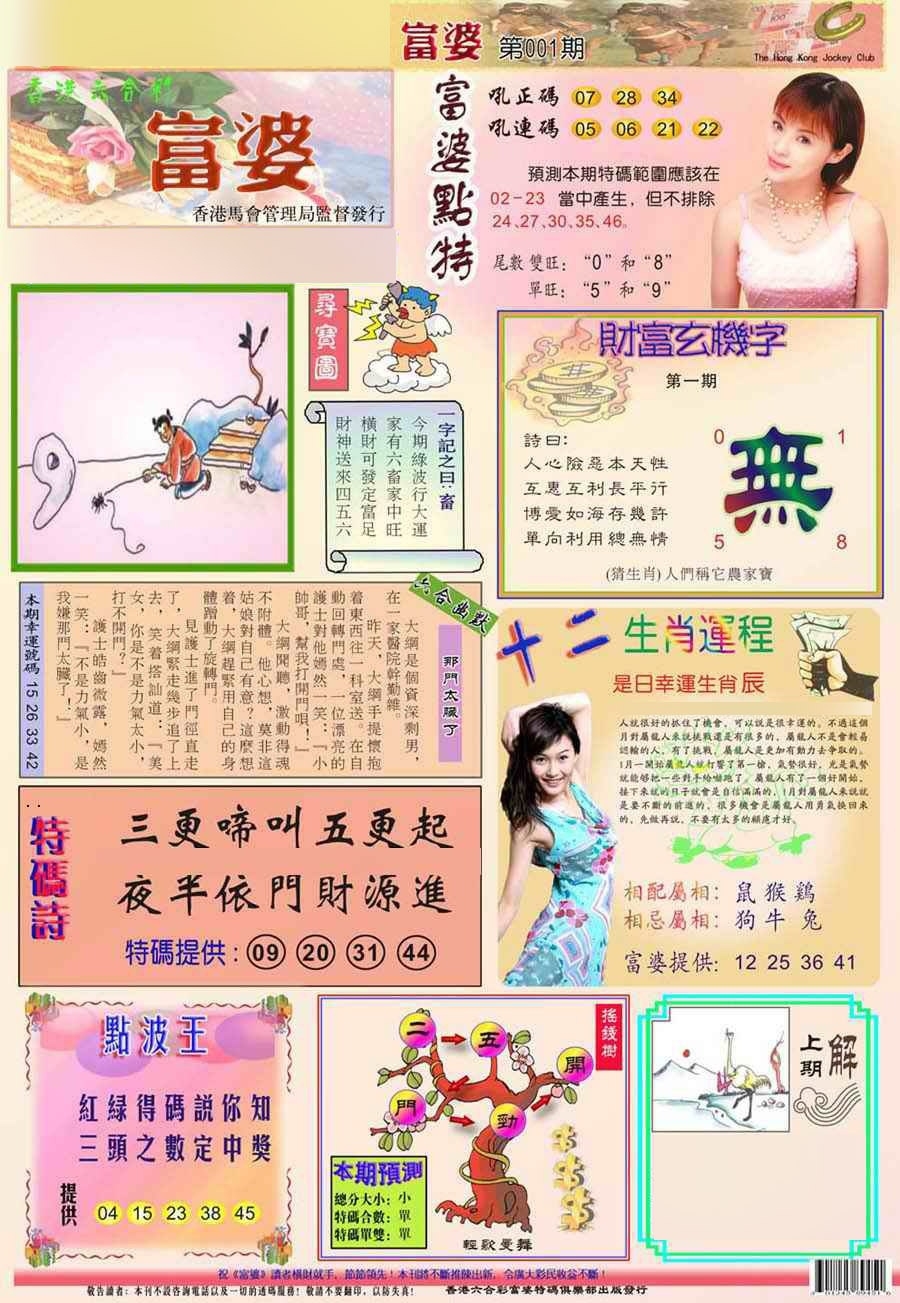 富婆 第001期
The Hong Kong Jockey Club
香港六合彩
富婆
香港馬會管理局監督發行
富婆點特
吼正碼 07 28 34
吼連碼 05 06 21 22
預測本期特碼範圍應該在
02-23 當中產生，但不排除
24、27、30、35、46。
尾數雙旺：“0”和“8”
單旺：“5”和“9”
尋寶圖
一字記之曰：畜
今期綠波行大運
家有六畜家中旺
橫財可發定富足
財神送來四五六
財富玄機字
第一期
詩曰：
人心險惡本天性
互惠互利長平行
博愛如海存幾許
單向利用總無情
0 1
無
5 8
(猜生肖)人們稱它農家寶
六合幽默
那門太贓了
大綱是個資深剩男，
在一家醫院幹勤雜。
昨天，大綱手提懷抱
着東西往一科室送。在自
動回轉門處，一位漂亮的
護士對他嫣然一笑：“小
帥哥，幫我打開門唄！”
大綱聞聽，激動得魂
不附體。他心想，莫非這
姑娘對自己有意？這麼想
着，大綱趕緊用自己的身
體蹭動了旋轉門。
見護士進了門徑直走
了，大綱緊走幾步追了上
去，笑着搭訕道：“美
女，你是不是力氣太小，
打不開門？”
護士皓齒微露，嫣然
一笑：“不是力氣小，是
我嫌那門太臟了！”
本期幸運號碼 15 26 33 42
十二生肖運程
是日幸運生肖辰
人就很好的抓住了機會，可以說是很幸運的。不過這個
月對屬龍人來說挑戰還是有很多的，屬龍人不是會輕易
認輸的人，有了挑戰，屬龍人是更加有動力去爭取的。
1月一開始屬龍人就打響了第一槍，氣勢很好，光是氣勢
就能够把一些對手給嚇跑了。屬龍人有了一個好開始，
接下來就的日子就會是自信滿滿的，1月對屬龍人來說就
是要不斷的前進的，很多機會是屬龍人用勇氣換回來
的，先做再說，不要有太多的顧慮才好。
相配屬相：鼠 猴 鷄
相忌屬相：狗 牛 兔
富婆提供：12 25 36 41
特碼詩
三更啼叫五更起
夜半依門財源進
特碼提供：09 20 31 44
點波王
紅緑得碼説你知
三頭之數定中獎
提供 04 15 23 38 45
搖錢樹
二 五 開
門 勁
本期預測
總分大小：小
特碼合數：單
特碼單雙：單
輕歌曼舞
上期解
祝《富婆》讀者橫財就手，節節領先！本刊將不斷推陳出新，令廣大彩民收益不斷！
敬告讀者：本刊不設咨詢電話以及一切的透碼服務！敬請不要翻印，以防失真！ 香港六合彩富婆特碼俱樂部出版發行